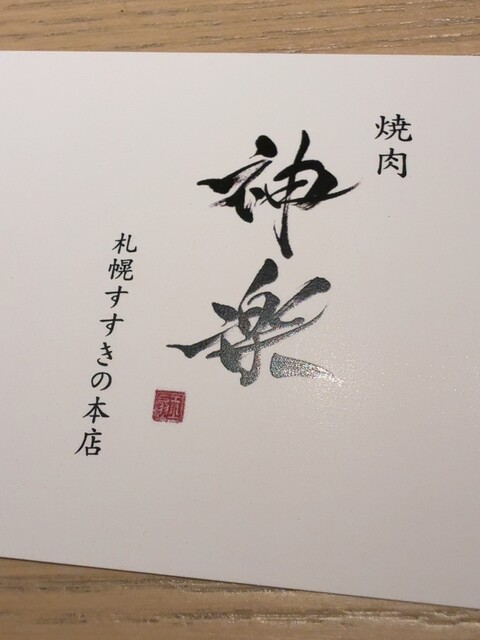 焼肉
神楽
札幌すすきの本店